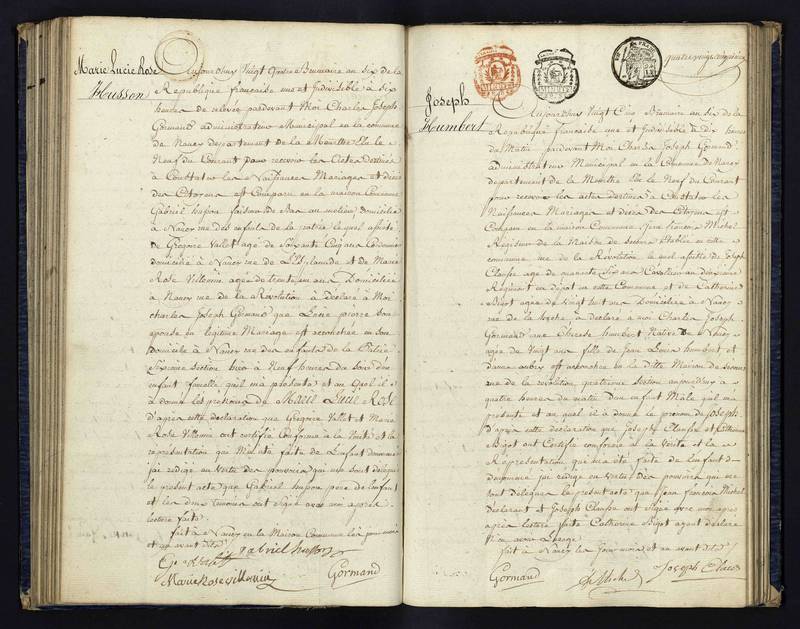 Marie Lucie Rose
Husson
Aujourd'huy Vingt quatre Brumaire an six de la
Republique française une et Indivisible à six
heures de relevée pardevant Moi Charles Joseph
Gormand administrateur Municipal en la commune
de Nancy departement de la Meurthe Elu le
Neuf du Courant pour recevoir les Actes destinés
à Constater les Naissances Mariages et décès
des Citoyens est Comparu en la maison Commune
Gabriel husson faiseur de Bas au métier, domicilié
à Nancy rue des enfants de la patrie lequel assisté
de Gregoire Vallet agé de soixante Cinq ans Cordonnier
domicilié à Nancy rue de et de Marie
Rose Villemin agée de trente un ans Domiciliée
à Nancy rue de la Revolution à Declaré à Moi
charles Joseph Gormand que Lucie pierre son
epouse en legitime Mariage est accouchée en son
Domicile à Nancy rue des enfants de la Patrie
Sixieme section hier à Neuf heures du soir d'un
enfant femelle qu'il m'a presenté et au quel il a
à donné les prenoms de Marie Lucie Rose
d'apres cette declaration que Gregoire Vallet et Marie
Rose Villemin ont certifié Conforme à la Vérité et la
representation qui M'a été faite de L'enfant denommé
j'ai redigé en Vertu des pouvoirs qui me sont delegués
le present acte que Gabriel husson pere de l'enfant
et les deux temoins ont signé avec moi après
lecture faite.
fait à Nancy en la Maison Commune les jour mois
et an avant dits
gabriel husson
Marie Rose villemin
Gormand
quatre vingt
Joseph
Humbert
Aujourd'huy Vingt Cinq Brumaire an six de la
Republique française une et Indivisible à dix heures
du Matin pardevant Moi Charles Joseph Gormand
administrateur Municipal en la Commune de Nancy
departement de la Meurthe Elu le Neuf du Courant
pour recevoir les actes destinés à Constater les
Naissances Mariages et décès des Citoyens est
Comparu en la maison Commune Jean francois Michel
Regisseur de la Maison de secours Etablie en cette
commune rue de la Revolution le quel assisté de Joseph
Clausse agé de quarante Six ans Cavalier au
Regiment en dépot en cette Commune et de Catherine
Bigot agée de Vingt huit ans Domiciliée à Nancy
rue de la à declaré à moi Charles Joseph
Gormand que Therese humbert Native de Nancy
agée de Vingt ans fille de Jean Louis humbert et
d'anne aubry est accouchée en la dite Maison de secours
rue de la revolution quatrieme Section aujourd'huy à
quatre heures du matin d'un enfant Male qu'il m'a
presenté et au quel il à donné le prenom de Joseph
d'apres cette declaration que Joseph Clausse et Catherine
Bigot ont Certifié conforme à la Vérité et la
Réprésentation qui m'a été faite de l'enfant
denommé j'ai redigé en vertu des pouvoirs qui me
sont delegués le present acte que Jean francois Michel
Declarant et Joseph Clausse ont signé avec moi après
après lecture faite Catherine Bigot ayant declaré
N'en avoir L'usage.
fait à Nancy les Jour mois et an avant dits
Gormand
Michel
Joseph Claus